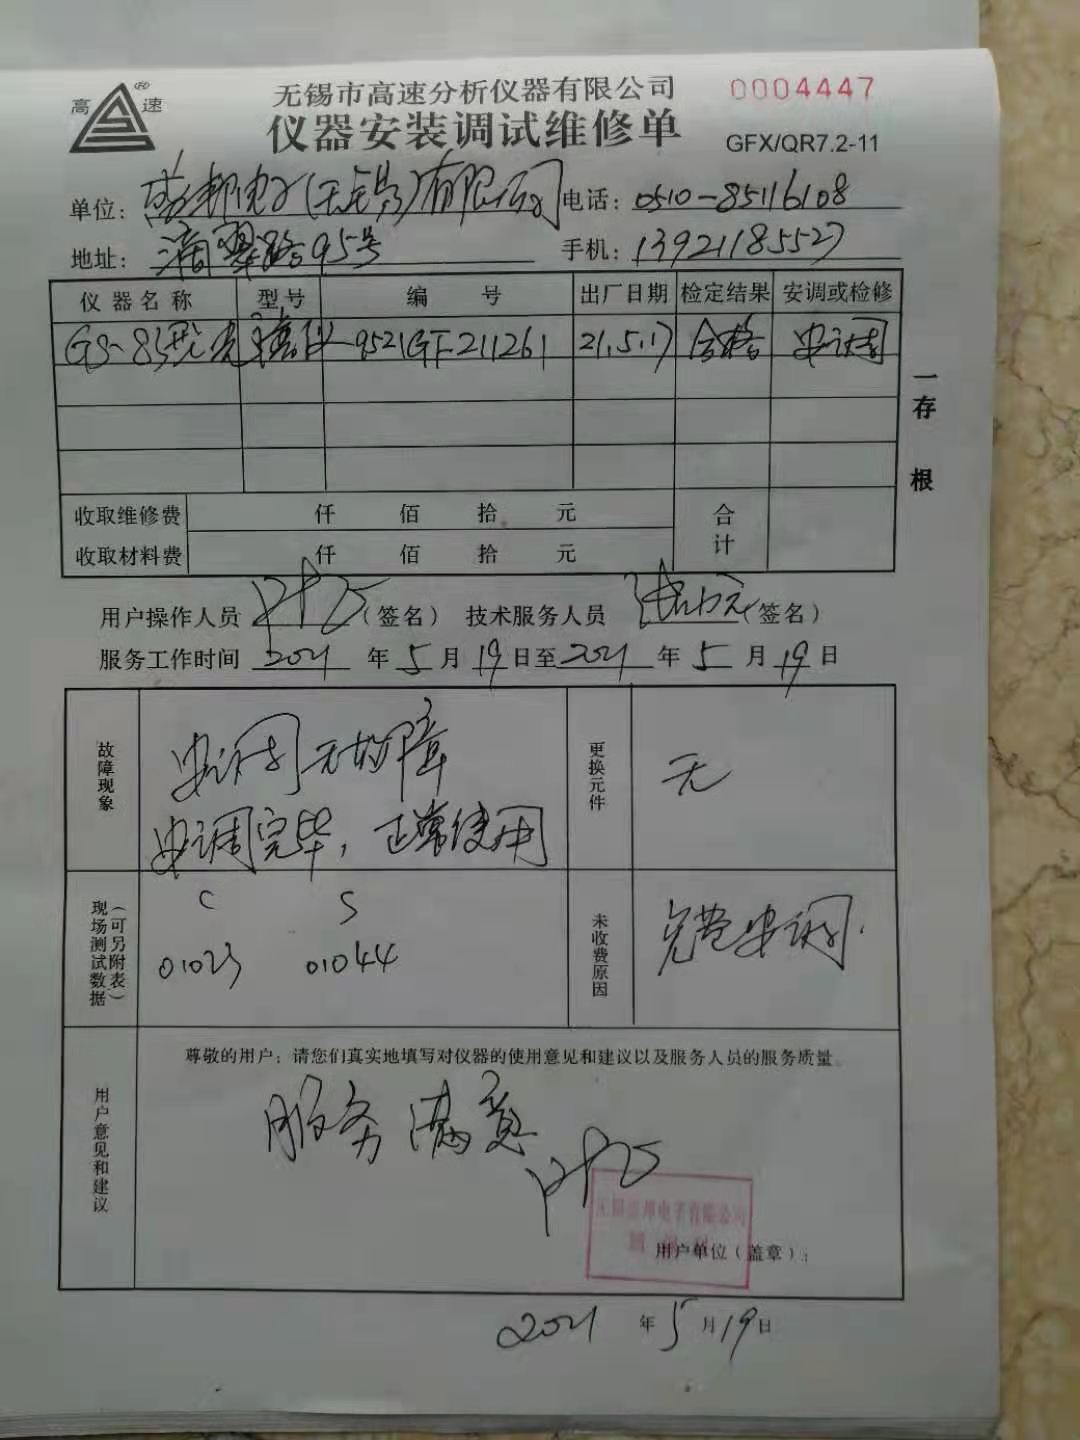 高 速 ®
无锡市高速分析仪器有限公司 0004447
仪器安装调试维修单 GFX/QR7.2-11
单位: 盛邦电子(无锡)有限公司 电话: 0510-85116108
地址: 滴翠路95号 手机: 13921185527
仪器名称 型号 编号 出厂日期 检定结果 安调或检修
GS-83型 9521GF211261 21.5.17 合格 安调
一存根
收取维修费 仟 佰 拾 元 合计
收取材料费 仟 佰 拾 元
用户操作人员 (签名) 技术服务人员 (签名)
服务工作时间 2021 年 5 月 19 日至 2021 年 5 月 19 日
故障现象 安调无故障 更换元件 无
安调完毕, 正常使用
现场测试数据(可另附表) C S 未收费原因 免费安调.
01023 01044
用户意见和建议 尊敬的用户: 请您们真实地填写对仪器的使用意见和建议以及服务人员的服务质量。
服务满意
用户单位(盖章):
2021 年 5 月 19 日